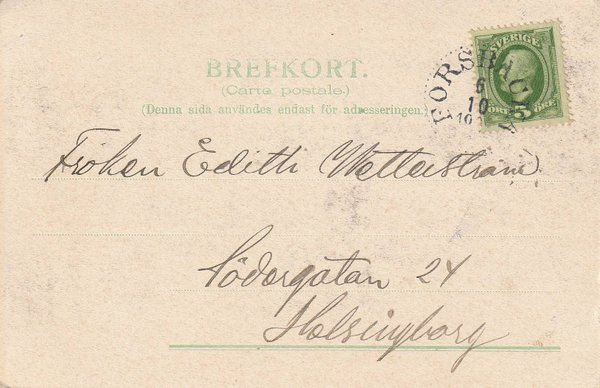 BREFKORT.
(Carte postale.)
(Denna sida användes endast för adresseringen.)
SVERIGE
5
ÖRE ÖRE
FORSBACKA
6
10
Fröken Edith Wetterstrand
Södergatan 24
Helsingborg